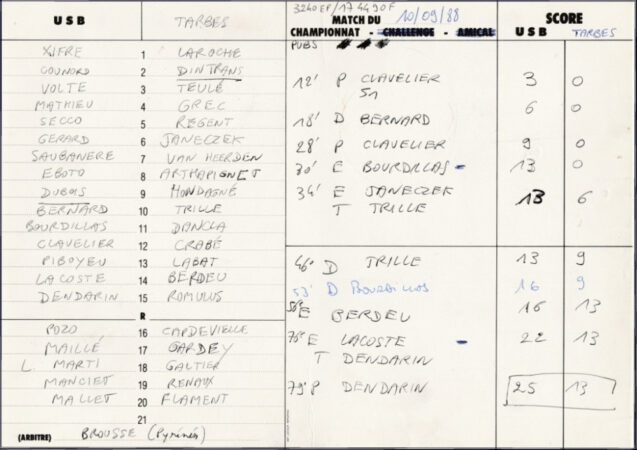 USB TARBES
XIFRE 1 LAROCHE
GOUNORD 2 DINTRANS
VOLTE 3 TEULÉ
MATHIEU 4 GREC
SECCO 5 REGENT
GERARD 6 JANECZEK
SAUBANERE 7 VAN HEERDEN
EBOTO 8 ARTHAPIGNET
DUBOIS 9 MONDAGNÉ
BERNARD 10 TRILLE
BOURDILLAS 11 DANCLA
CLAVELIER 12 CRABÉ
PIBOYEU 13 LABAT
LACOSTE 14 BERDEU
DENDARIN 15 ROMULUS
R
POZO 16 CAPDEVIELLE
MAILLÉ 17 GARDEY
L. MARTI 18 GALTIER
MANCIET 19 RENAUX
MALLET 20 FLAMENT
21
(ARBITRE) BROUSSE (Pyrénées)
3240 EP/17 4490F
MATCH DU 10/09/88 SCORE
CHAMPIONNAT - CHALLENGE - AMICAL USB TARBES
PUBS
12' P CLAVELIER 3 0
51
18' D BERNARD 6 0
28' P CLAVELIER 9 0
30' E BOURDILLAS - 13 0
34' E JANECZEK 13 6
T TRILLE
46' D TRILLE 13 9
53' D BOURDILLOS 16 9
58' E BERDEU 16 13
75' E LACOSTE - 22 13
T DENDARIN
79' P DENDARIN 25 13